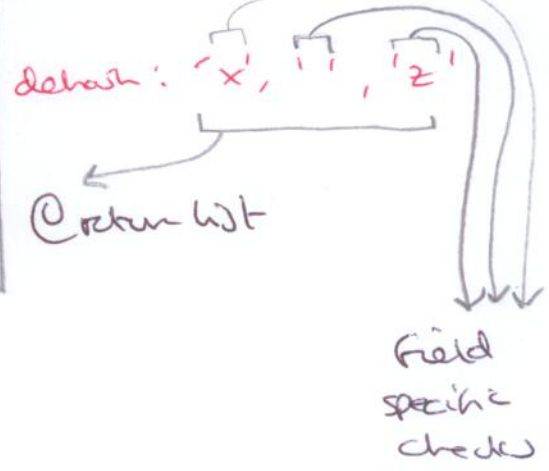 dehash: 'x', '', 'z'
@return list
Field
specific
checks